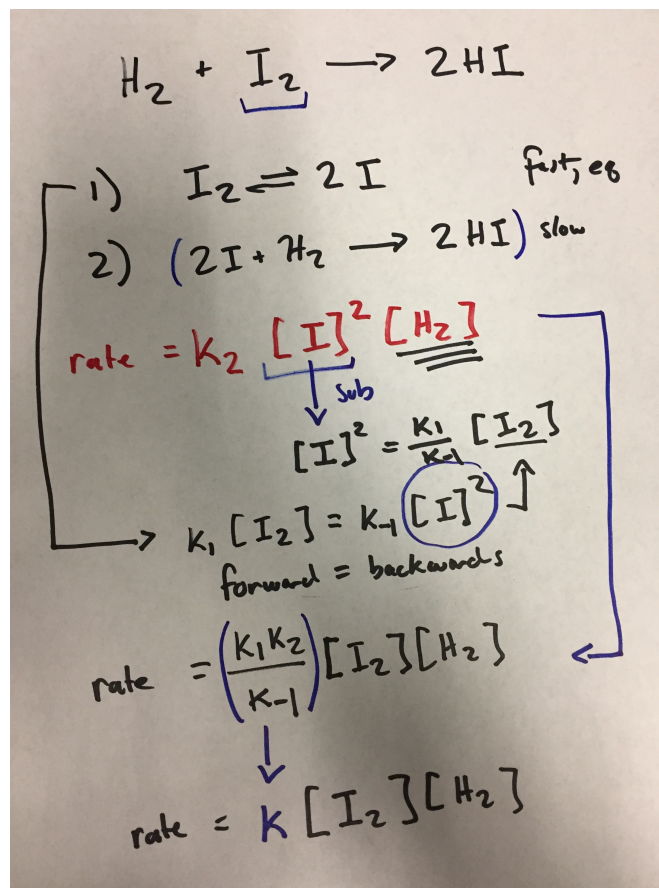 H₂ + I₂ → 2HI
1) I₂ ⇌ 2I fast, eq
2) (2I + H₂ → 2HI) slow
rate = k₂ [I]² [H₂]
sub
[I]² = k₁/k₋₁ [I₂]
k₁ [I₂] = k₋₁ [I]²
forward = backwards
rate = (k₁k₂/k₋₁) [I₂][H₂]
rate = k [I₂][H₂]